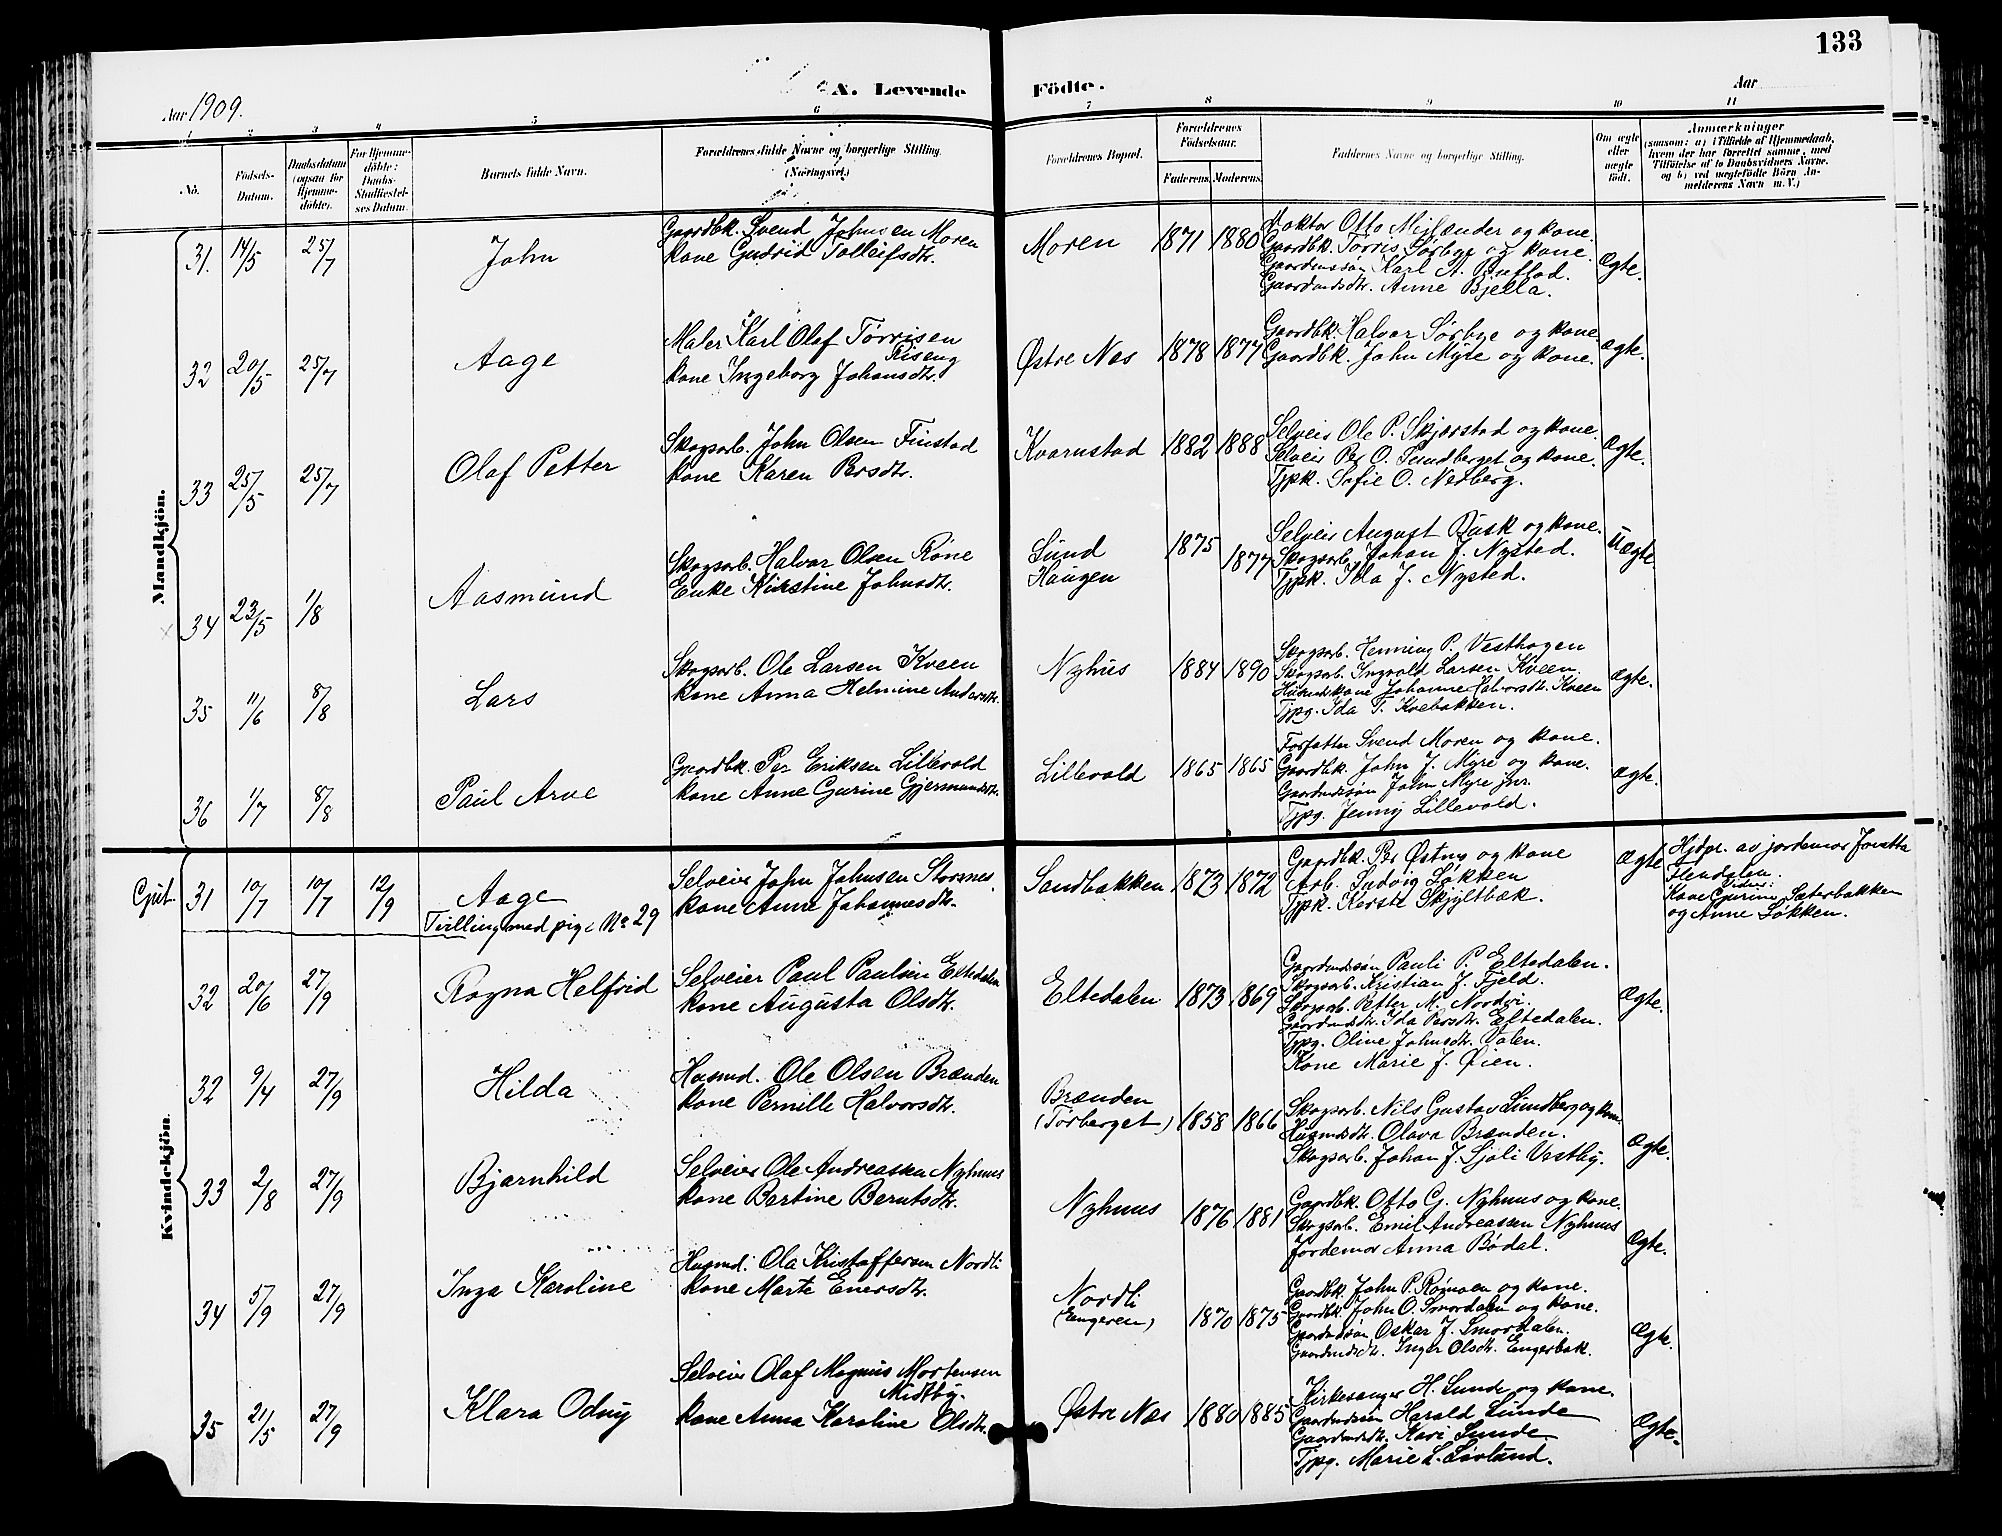 133
A. Levende Födte.
Aar 1909.
Aar
1 2 3 4 5 6 7 8 9 10 11
No.
Födsels-Datum.
Daabsdatum (ogsaa for Hjemme-döbte).
For Hjemme-döbte: Daabs-Stadfæstel-ses Datum.
Barnets fulde Navn.
Forældrenes fulde Navne og borgerlige Stilling. (Næringsvei.)
Forældrenes Bopæl.
Forældrenes Födselsaar.
Faderens. Moderens.
Faddernes Navne og borgerlige Stilling.
Om ægte eller uægte födt.
Anmærkninger
(saasom: a) i Tilfælde af Hjemmedaab, hvem der har forrettet samme, med Tilföielse af to Daabsvidners Navne, og b) ved uægtefödte Börn An-melderens Navn m. V.)
Mandkjön.
31. 14/5 25/7 John
Gaardbk. Svend Johnsen Moren
kone Gudrid Tolleifsdtr.
Moren 1871 1880
Doktor Otto Mejlænder og kone.
Gaardbk. Tørris Sørbye og kone.
Gaardmssøn Karl A.
Gaardmdsdtr. Anne Bjella.
Ægte.
32 20/5 25/7 Aage
Maler Karl Olaf Tørrisen
Riseng
kone Ingeborg Johansdtr.
Østre Nes 1878 1877
Gaardbk. Halvor Sørbye og kone
Gaardbk. John Myre og kone.
Ægte.
33 25/5 25/7 Olaf Petter
Skogsarb. John Olsen Finstad
kone Karen Persdtr.
Kvarnstad 1882 1888
Selveier Ole P. Skjærstad og kone.
Selveier Per O. Sundberget og kone.
Tjpk. Sofie O. Nedberg.
Ægte.
34 23/5 1/8 Aasmund
Skogsarb. Halvor Olsen Røne
Enke Kirstine Johnsdtr.
Sund
Haugen
1875
1877
Selveier August Rusk og kone.
Skogsarb. Johan J. Nysted.
Tjpk. Ida J. Nysted.
Uægte
35 11/6 8/8 Lars
Skogsarb. Ole Larsen Kveen
kone Anna Helmine Andersdtr.
Nyhus 1884 1890
Skogsarb. Henning P. Vesthagen
Skogsarb. Ingvald Larsen Kveen
Husmdskone Johanne Halvorsdtr. Kveen
Tjpg. Ida T. Kvebakken.
Ægte.
36 1/7 8/8 Paul Arve
Gaardbk. Per Eriksen Lillevold
kone Anne Gurine Gjermundsdtr.
Lillevold 1865 1865
Forfatter Svend Moren og kone.
Gaardbk. John J. Myre og kone.
Gaardmdssøn John Myre jnr.
Tjpg. Jenny Lillevold.
Ægte.
Gut. 31 10/7 10/7 12/9 Aage
Tvilling med pige No 29
Selveier John Johnsen Stornes.
kone Anne Johannesdtr.
Sandbakken 1873 1872
Gaardbk. Per Østmo og kone
Arb. Ludvig Løkken
Tjpk. Kersti Skjyltbæk.
Ægte
Hjdpt. av jordemor Joratta
Flendalen.
Vidner:
Kone Gurine Sæterbakken
og Anne Løkken.
Kvindekjön.
32 20/6 27/9 Ragna Helfrid
Selveier Paul Paulsen Eltedalen
kone Augusta Olsdtr.
Eltedalen 1873 1869
Gaardmdssøn Pauli P. Eltedalen.
Skogsarb. Kristian J. Fjeld.
Skogsarb. Petter M. Nordvi.
Gaardmdsdtr. Ida Persdtr. Eltedalen.
Tjpg. Oline Johnsdtr. Volen.
Kone Marie J. Øien.
Ægte.
32 9/4 27/9 Hilda
Husmd. Ole Olsen Brænden
kone Pernille Halvorsdtr.
Brænden
(Tørberget) 1858 1866
Skogsarb. Nils Gustav Sundberg og kone
Husmdsdtr. Olava Brænden.
Skogsarb. Johan J. Sjøli Vestby.
Ægte.
33 2/8 27/9 Bjarnhild
Selveier Ole Andreassen Nyhuus
kone Bertine Berntsdtr.
Nyhuus 1876 1881
Gaardbk. Otto G. Nyhuus og kone.
Skogsarb. Emil Andreassen Nyhuus
Jordemor Anna Bødal.
Ægte.
34 5/9 27/9 Inga Karoline
Husmd. Ola Kristoffersen Nordli
kone Marte Enersdtr.
Nordli
(Engeren) 1870 1875
Gaardbk. John P. Rømoen og kone.
Gaardbk. John O. Smordalen og kone.
Gaardmdssøn Oskar J. Smordalen.
Gaardmdsdtr. Inger Olsdtr. Engerbak.
Ægte.
35 21/5 27/9 Klara Odny
Selveier Olaf Magnus Mortensen
Midtby.
kone Anna Karoline Olsdtr.
Østre Nes 1880 1885
Kirkesanger H. Lunde og kone.
Gaardmdssøn Harald Lunde
Gaardmdsdtr. Kari Lunde
Tjpg. Marie L. Lørlund.
Ægte.